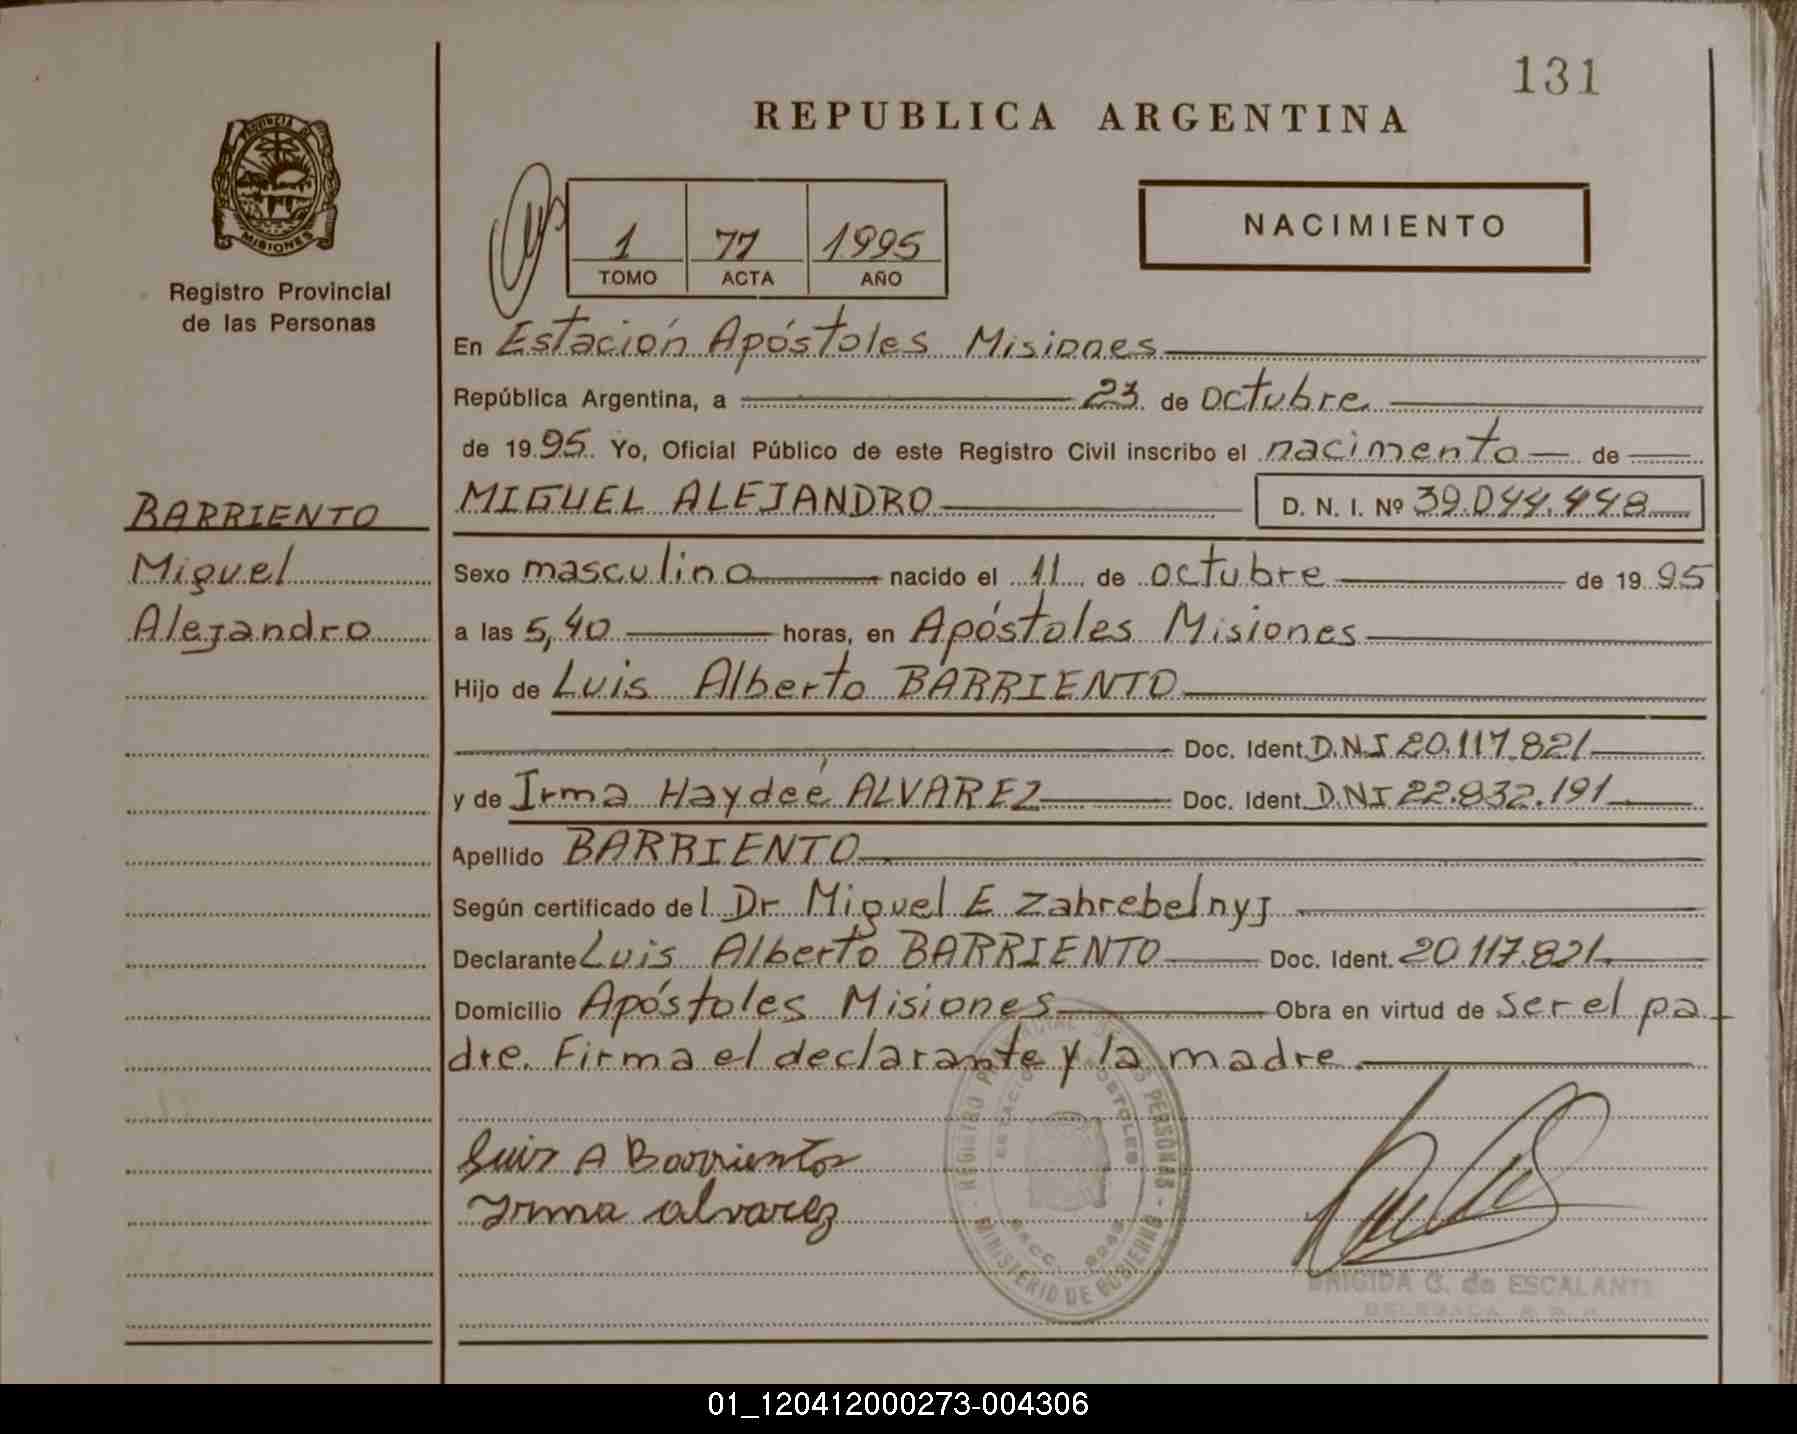 131
REPUBLICA ARGENTINA
PROVINCIA DE
MISIONES
Registro Provincial
de las Personas
1 77 1995
TOMO ACTA AÑO
NACIMIENTO
En Estación Apóstoles Misiones
República Argentina, a 23 de octubre
de 1995. Yo, Oficial Público de este Registro Civil inscribo el nacimento de
BARRIENTO
Miguel
Alejandro
MIGUEL ALEJANDRO D. N. I. Nº 39.044.448
Sexo masculino nacido el 11 de octubre de 1995
a las 5,40 horas, en Apóstoles Misiones
Hijo de Luis Alberto BARRIENTO
Doc. Ident. D.N.I 20.117.821
y de Irma Haydeé ALVAREZ Doc. Ident. DNI 22.832.191
Apellido BARRIENTO
Según certificado del Dr Miguel E Zahrebelnyj
Declarante Luis Alberto BARRIENTO Doc. Ident. 20.117.821
Domicilio Apóstoles Misiones Obra en virtud de ser el pa
dre. Firma el declarante y la madre.
Luis A Barrientos
Irma alvarez
REGISTRO PROVINCIAL DE LAS PERSONAS - MINISTERIO DE GOBIERNO -
ESTACION APOSTOLES
BRIGIDA G. de ESCALANTE
01_120412000273-004306